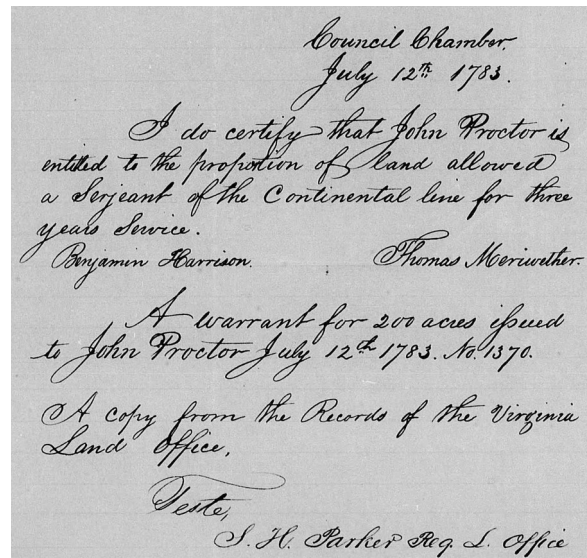 Council Chamber.
July 12th 1783.
I do certify that John Proctor is
entitled to the proportion of land allowed
a Serjeant of the Continental line for three
years Service.
Benjamin Harrison. Thomas Meriwether.
A warrant for 200 acres issued
to John Proctor July 12th 1783. No. 1370.
A copy from the Records of the Virginia
Land Office.
Teste,
S. H. Parker Reg. L. Office